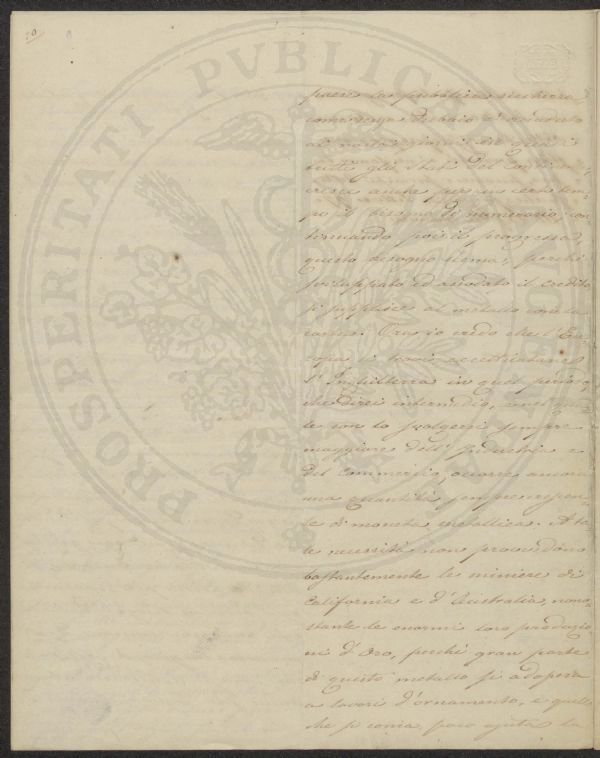 20
PROSPERITATI PUBLICAE
paese la pubblica ricchezza,
commercio
ai nostri giorni in quasi
tutti gli Stati del
cresce anche per un certo tem-
po il bisogno di numerario, con-
tinuando poi il progresso,
questo bisogno scema, perchè
sviluppato ed assodato il credito
si supplisce al metallo con la
carta. Ora io credo che l'Eu-
ropa si trovi eccettuatane
l'Inghilterra in quel periodo
che direi intermedio, nel qua-
le con lo svolgersi sempre
maggiore dell'industria e
del commercio, occorre ancora
una quantità sempre
te di moneta metallica. A ta-
le necessità non provvedono
bastantemente le miniere di
California e d'Australia, nono-
stante le enormi loro produzio
ni d'Oro, perchè gran parte
di questo metallo si adopera
a lavori d'ornamento, e quello
che si conia poco ajuta la